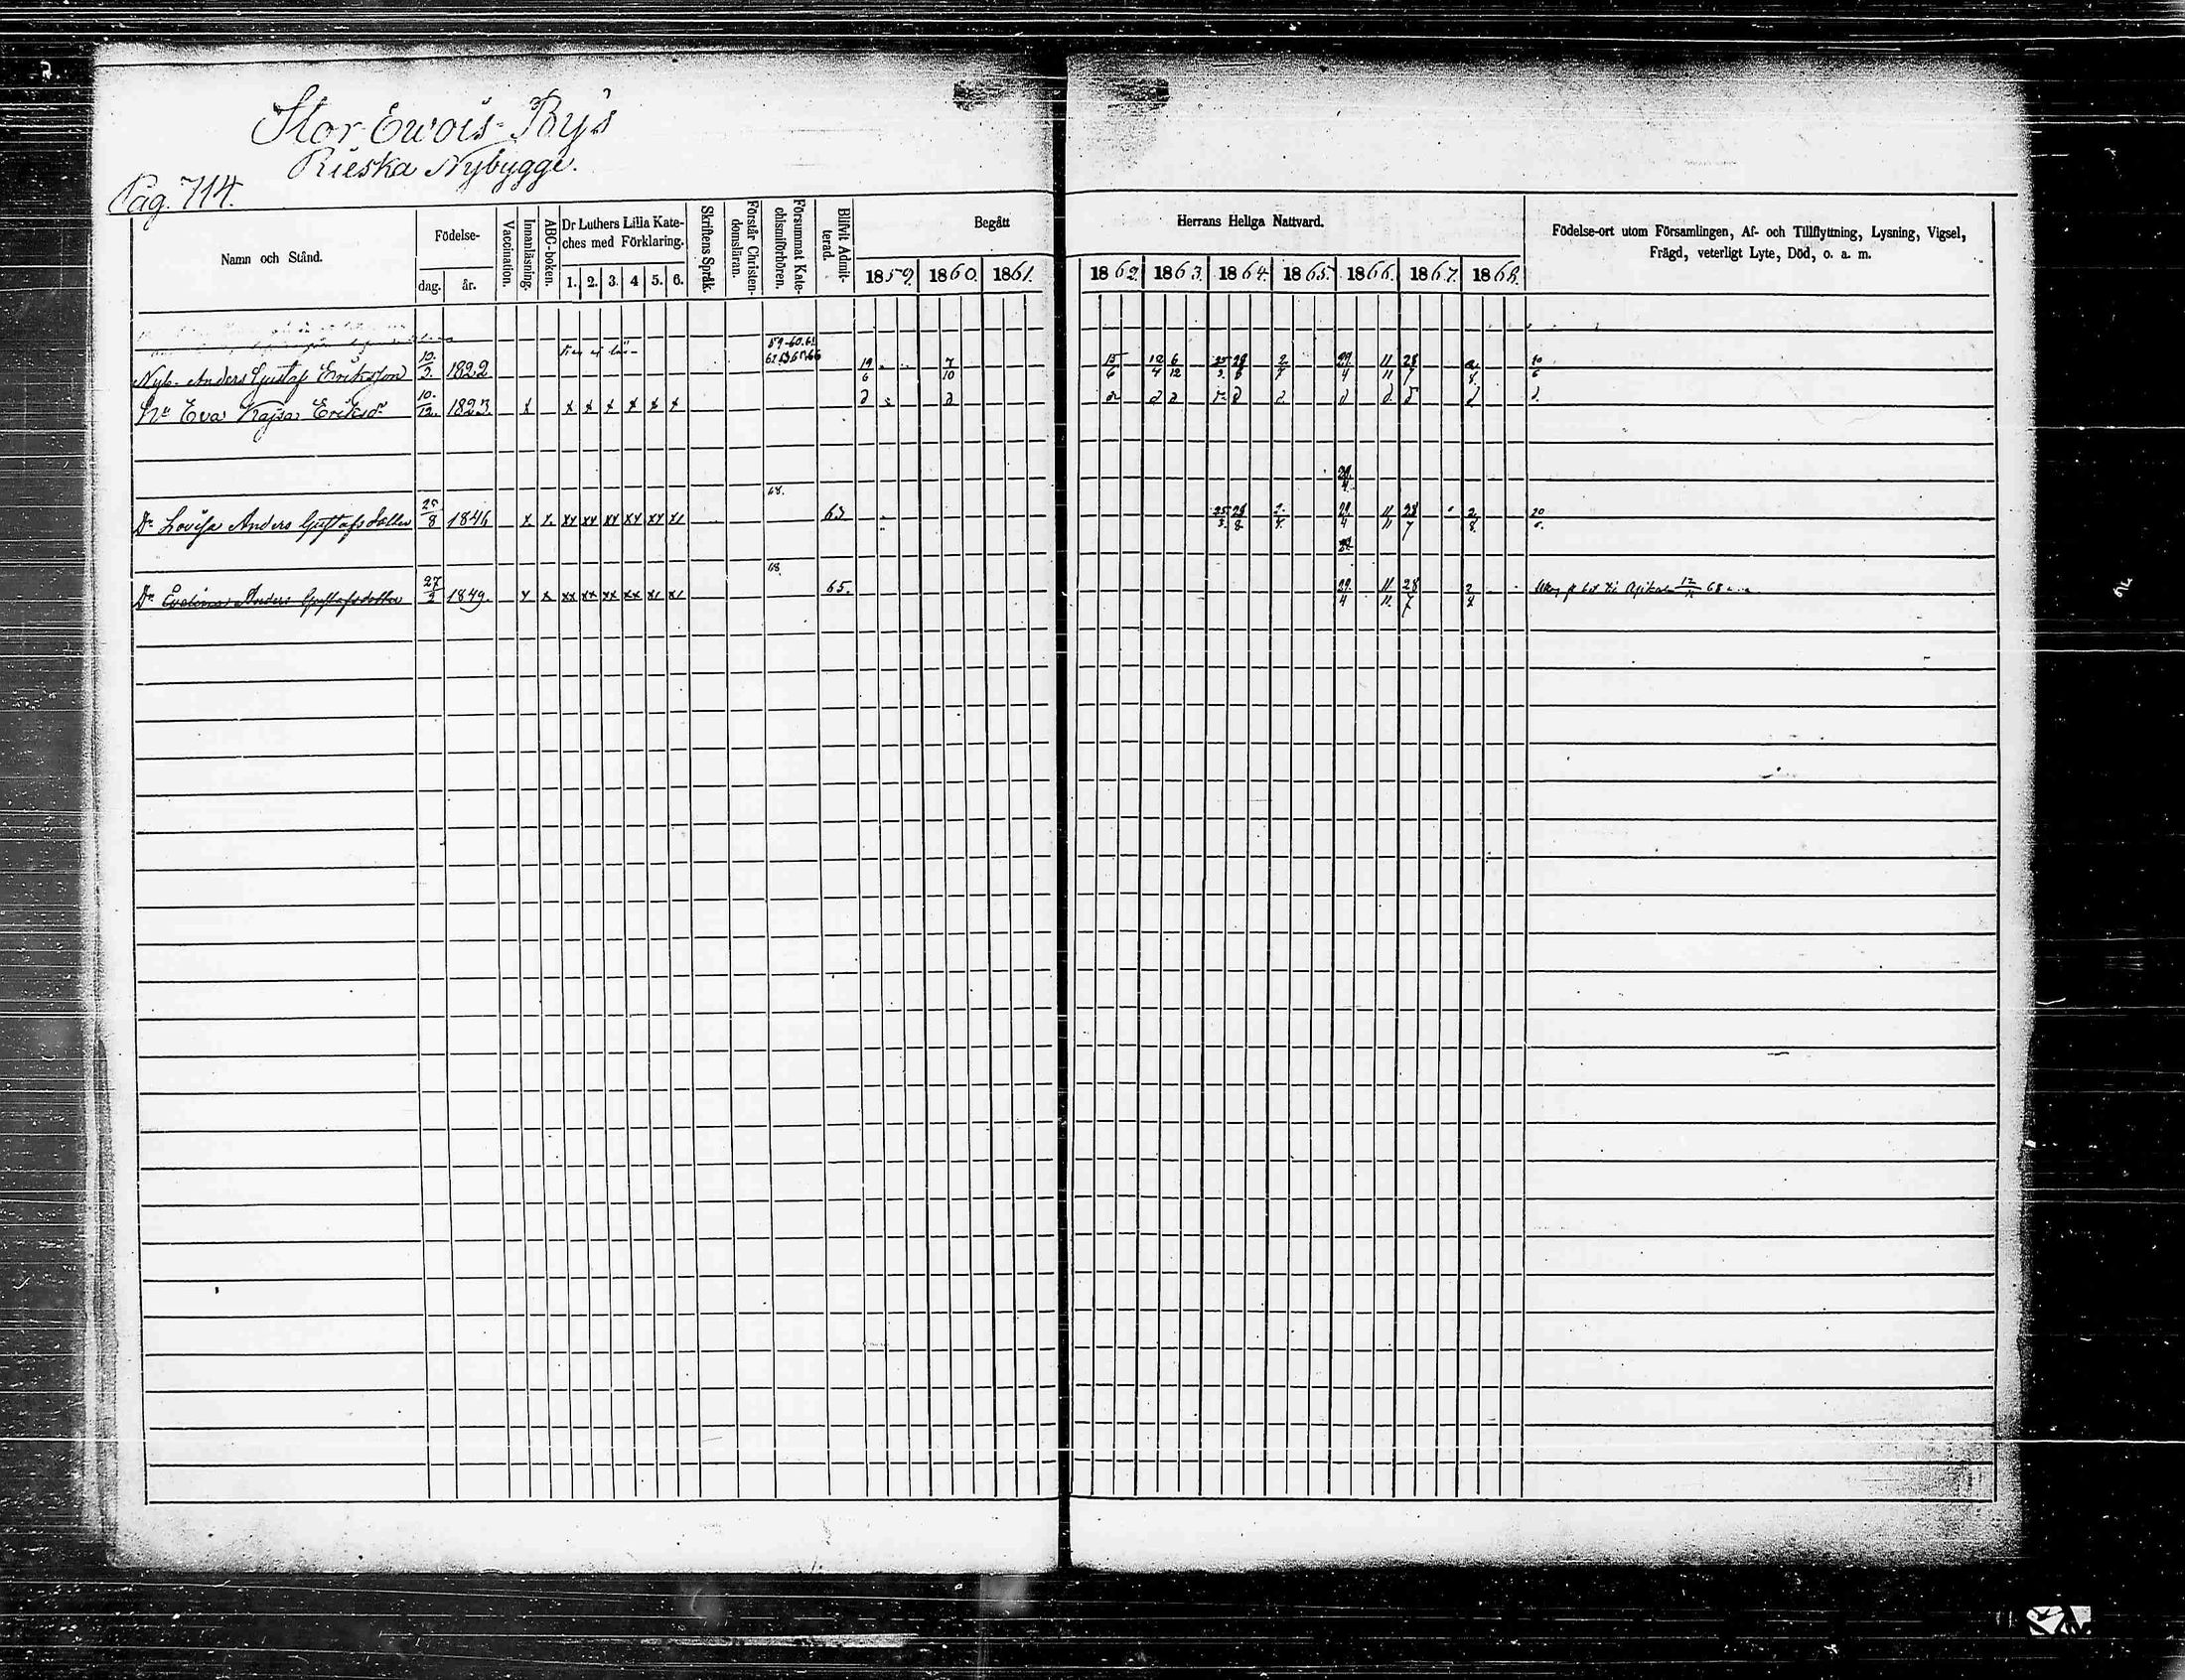 Stor Ewois Bys
Rieska Nybygge.
Pag. 714.
Namn och Stånd.
Födelse-
dag. år.
Vaccination.
Innanläsning.
ABC-boken.
Dr Luthers Lilla Kate-
ches med Förklaring.
1. 2. 3. 4 5. 6.
Skriftens Språk.
Förstår Christen-
domsläran.
Försummat Kate-
chismiförhören.
Blifvit Admit-
terad.
Begått Herrans Heliga Nattvard.
1859. 1860. 1861. 1862. 1863. 1864. 1865. 1866. 1867. 1868.
Födelse-ort utom Församlingen, Af- och Tillflyttning, Lysning, Vigsel,
Frägd, veterligt Lyte, Död, o. a. m.
59-60.61
Nyb. Anders Gustaf Eriksson 10/2. 1822 19/6 7/10 15/6 12/4 6/12 25/3. 28/8 2/7 29./4 11/11 28/7 2/8. 20/6
Hu Eva Kajsa Eriksd 10./12. 1823. x x x x x x x d d d d d d d d d
29./4
68.
Dr Lovisa Anders Gustafsdotter 25/8 1846 x x. xx xx xx xx xx xx 63. 25/3. 28/8 2./7. 29./4 11/11 28/7 2/8. 20/6.
68.
Dr Evelina Anders Gustafsdotter 27/2 1849. x x xx xx xx xx xx xx 65. 29./4 11/11. 28/7 2/8 12/12 68